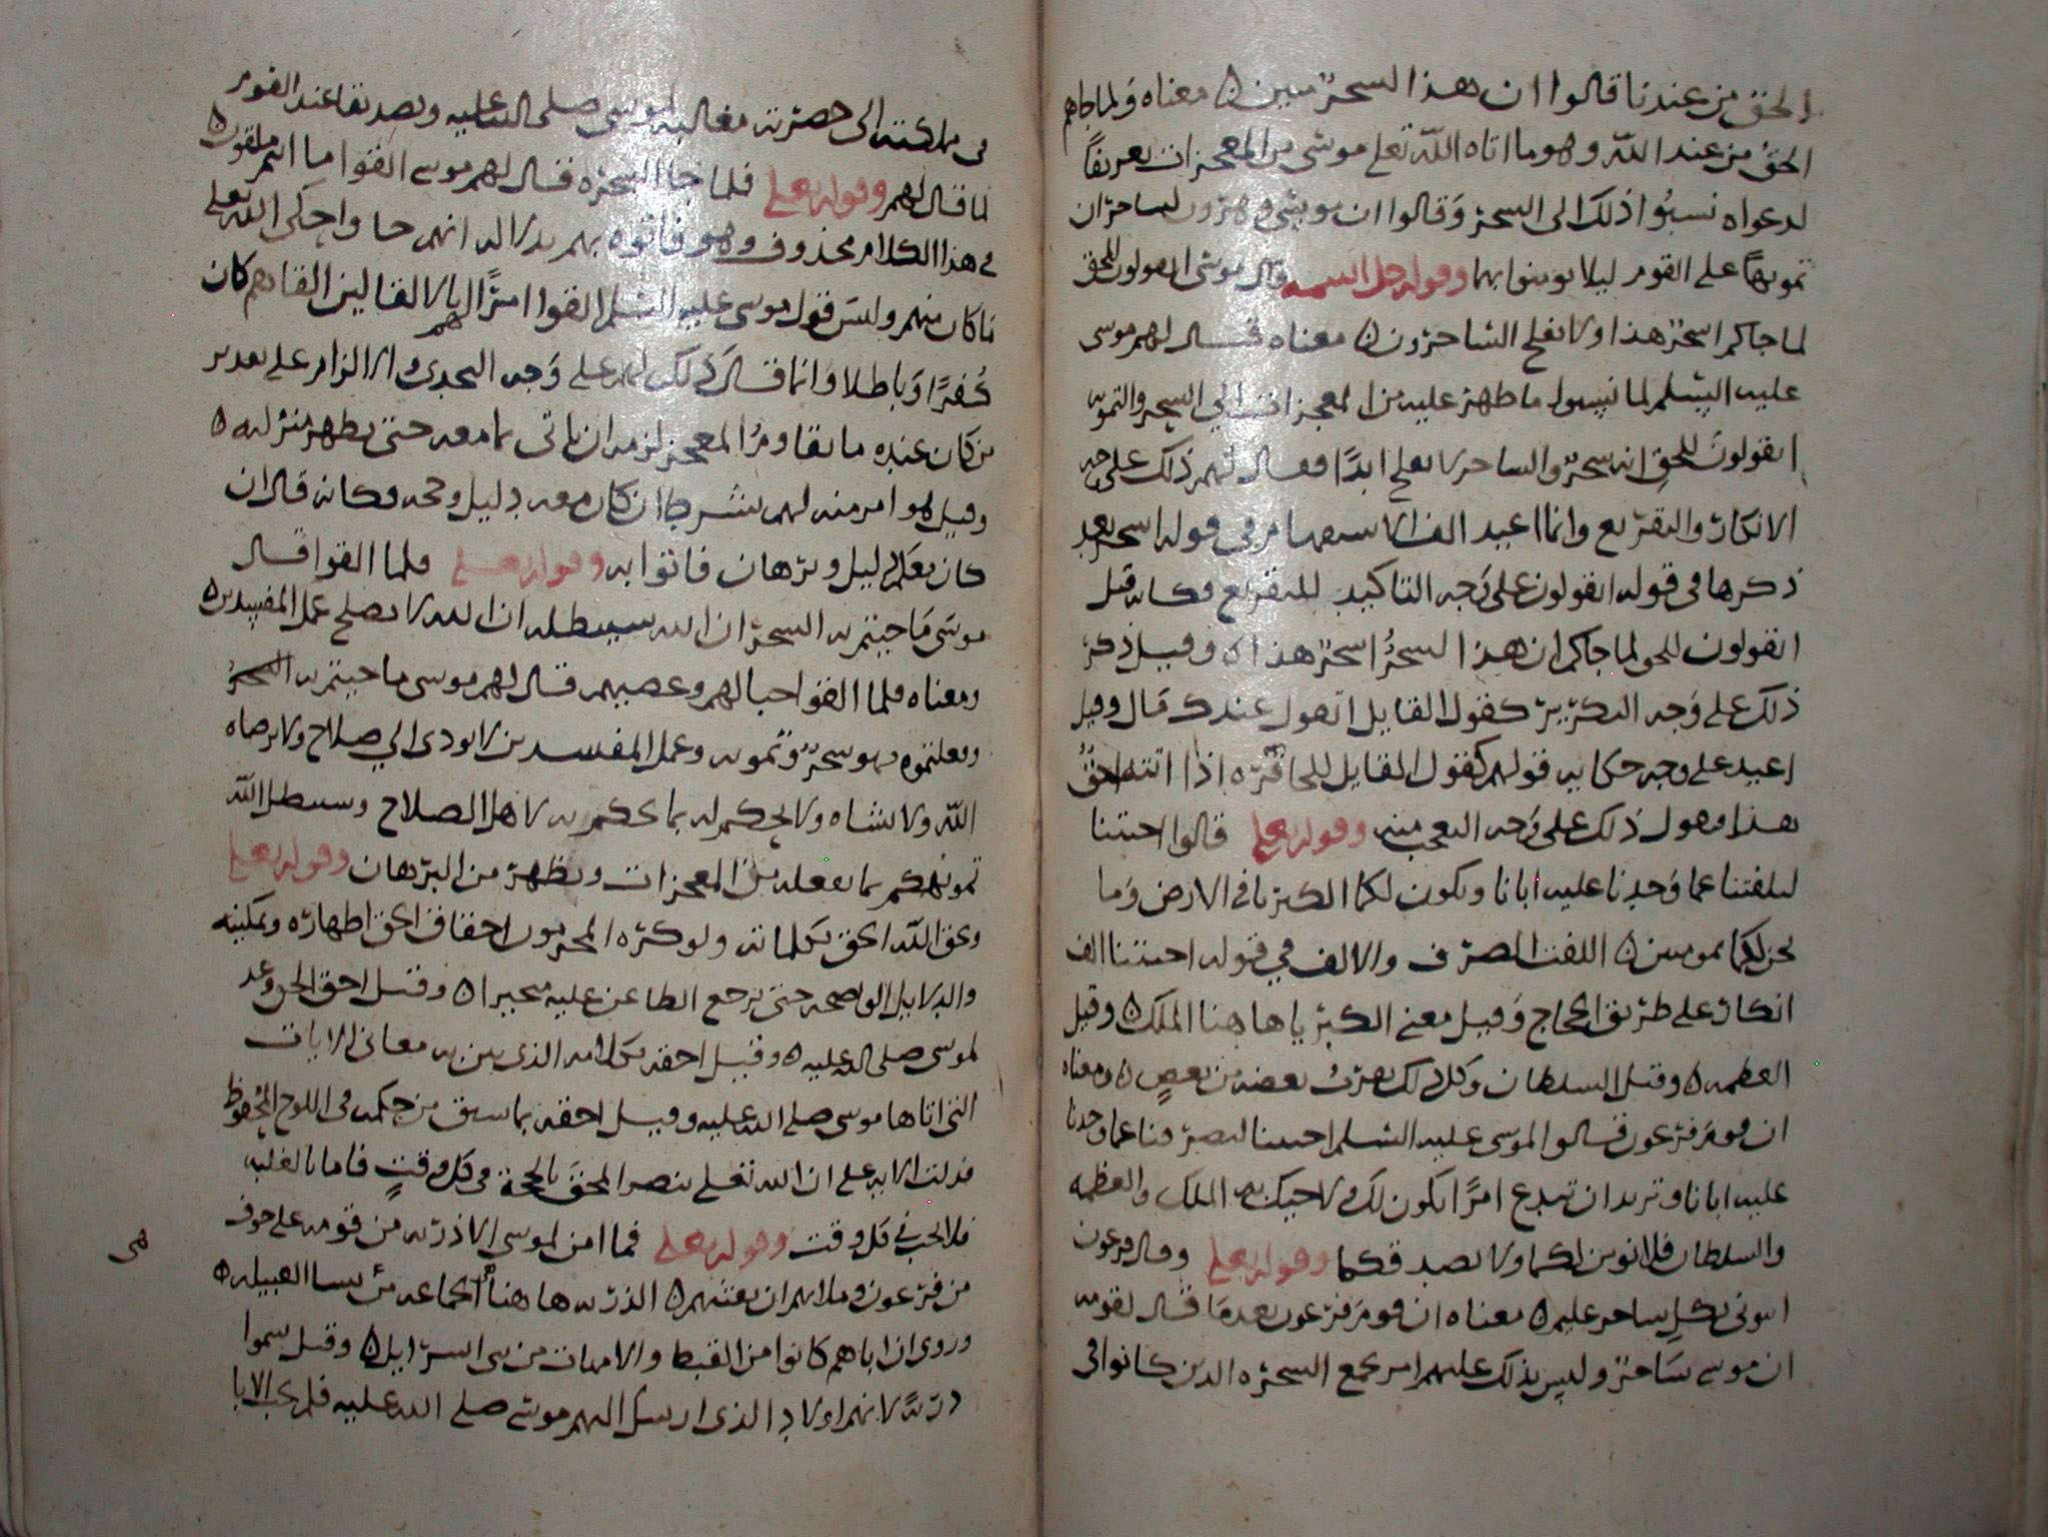 الحق من عندنا قالوا ان هذا السحر مبين ه معناه ولما جاهم
الحق من عند الله وهو ما اتاه الله تعلى موسى من المعجزات تعريفاً
لدعواه نسبوا ذلك الى السحر وقالوا ان موسى وهرون لساحران
تمويهاً على القوم ليلا يومنوا بهما وقوله جل اسمه قال موسى اتقولون للحق
لما جاكم اسحر هذا ولا يفلح الساحرون ه معناه فقال لهم موسى
عليه السلم لما نسبوا ما ظهر عليه من المعجزات الى السحر والتمويه
اتقولون للحق انه سحر والساحر لا يفلح ابدًا فقال لهم ذلك على وجه
الانكار والتقريع وانما اعيد الف الاستفهام في قوله اسحر بعد
ذكرها في قوله اتقولون على وجه التاكيد للتقريع وكانه قيل
اتقولون للحق لما جاكم ان هذا السحر اسحر هذا ه وقيل ذكر
ذلك على وجه التكرير كقول القايل اتقول عندك مال وقيل
اعيد على وجه حكايه قولهم كقول القايل للجايزه اذا اتته احق
هذا فيقول ذلك على وجه التعجب منه وقوله تعلى قالوا اجيتنا
لتلفتنا عما وجدنا عليه ابانا وتكون لكما الكبريا في الارض وما
نحن لكما بمومنين ه اللفت الصرف والالف في قوله اجيتنا الف
انكار على طريق الحجاج وقيل معنى الكبريا هاهنا الملك ه وقيل
العظمه ه وقيل السلطان وكل ذلك يقرب بعضه من بعض ه ومعناه
ان قوم فرعون قالوا لموسى عليه السلم اجيتنا لتصرفنا عما وجدنا
عليه ابانا وتريد ان تبدع امرًا يكون لك ولاخيك به الملك والعظمه
والسلطان فلا نومن لكما ولا نصدقكما وقوله تعلى وقال فرعون
ايتوني بكل ساحر عليم ه معناه ان قوم فرعون بعد ما قال لقومه
ان موسى ساحر ولبس بذلك عليهم امر بجمع السحره الذين كانوا في
في مملكته الى حضرته مغالبه لموسى صلى الله عليه وتصديقا عند القوم
لما قال لهم وقوله تعلى فلما جا السحره قال لهم موسى القوا ما انتم ملقون ه
في هذا الكلام محذوف وهو فاتوه بهم بدلاله انهم جاوا حكى الله تعلى
ما كان منهم وليس قول موسى عليه السلم القوا امرًا لهم بالالقا لان القاهم كان
كفرًا وباطلا وانما قال ذلك لهم على وجه التحدى والالزام على تقدير
من كان عنده ما يقاوم المعجز لزمه ان ياتي بما معه حتى تظهر منزلته ه
وقيل هو امر منه لهم بشرط ان كان معه دليل وحجه وكانه قال ان
كان معكم دليل وبرهان فاتوا به وقوله تعلى فلما القوا قال
موسى ما جيتم به السحر ان الله سيبطله ان الله لا يصلح عمل المفسدين ه
ومعناه فلما القوا حبالهم وعصيهم قال لهم موسى ما جيتم به السحر
وفعلتموه فهو سحر وتمويه وعمل المفسدين لا يودى الى صلاح ولا يرضاه
الله ولا يشاه ولا يحكم له بما يحكم به لاهل الصلاح وسيبطل الله
تمويهكم بما يفعله من المعجزات ويظهره من البرهان وقوله تعلى
ويحق الله الحق بكلماته ولو كره المجرمون احقاق الحق اظهاره وتمكينه
والدلايل الواضحه حتى يرجع الطاعن عليه متحيرا ه وقيل احق الحق وعد
لموسى صلى الله عليه ه وقيل احقه بكلامه الذي يبين به معاني الايات
التى اتاها موسى صلى الله عليه وقيل احقه بما سبق من حكمه في اللوح المحفوظ
فدلت الايه على ان الله تعلى ينصر المحق بالحجة في كل وقتٍ فاما بالغلبه
فلا يجب في كل وقت وقوله تعلى فما امن لموسى الا ذريه من قومه على خوف
من فرعون وملايهم ان يفتنهم ه الذريه هاهنا الجماعه من نسا القبيله ه
وروى ان اباهم كانوا من القبط والامهات من بني اسرايل ه وقيل سموا
ذريةً لانهم اولاد الذى ارسل اليهم موسى صلى الله عليه فلم يجب الابا